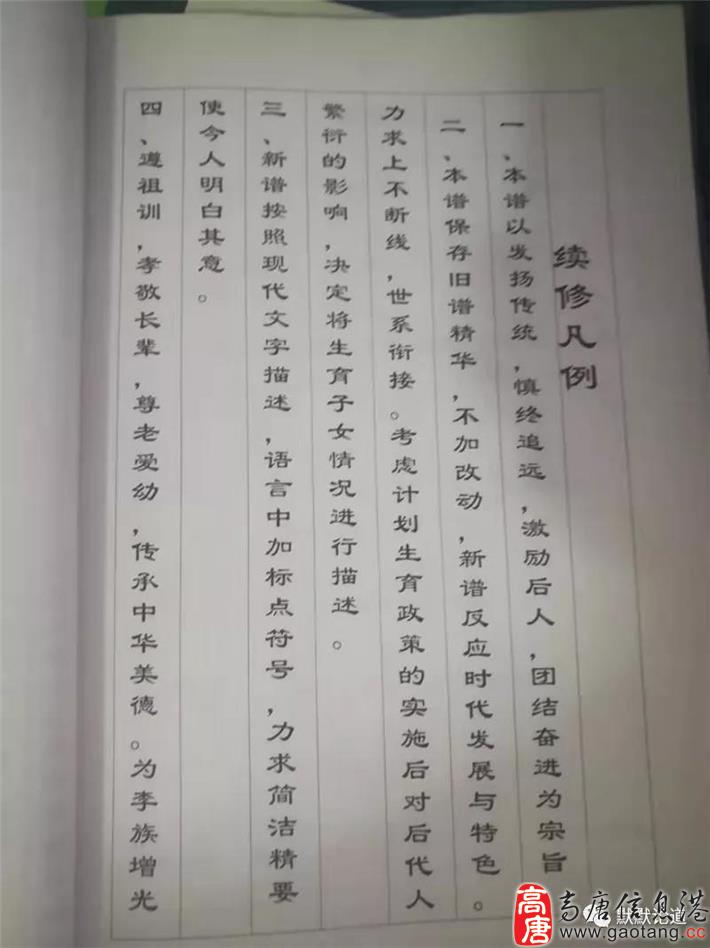 续修凡例
一、本谱以发扬传统，慎终追远，激励后人，团结奋进为宗旨
二、本谱保存旧谱精华，不加改动，新谱反应时代发展与特色。
力求上不断线，世系衔接。考虑计划生育政策的实施后对后代人
繁衍的影响，决定将生育子女情况进行描述。
三、新谱按照现代文字描述，语言中加标点符号，力求简洁精要
使今人明白其意。
四、遵祖训，孝敬长辈，尊老爱幼，传承中华美德。为李族增光
默默论道
高唐
高唐信息港
www.gaotang.cc